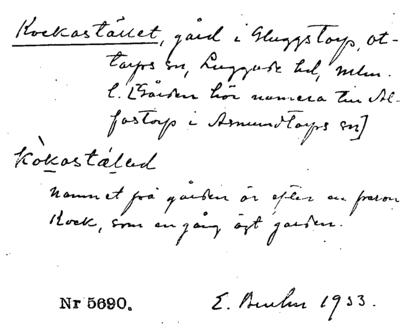 Kockastället, gård i Gluggstorp, Ot-
tarps sn, Luggude hd, Mlm.
l. [Gården hör numera till Al-
fastorp i Asmundtorps sn]
kòkastáled
namnet på gården är efter en person
Kock, som en gång ägt gården.
Nr 5690. E. 1933.